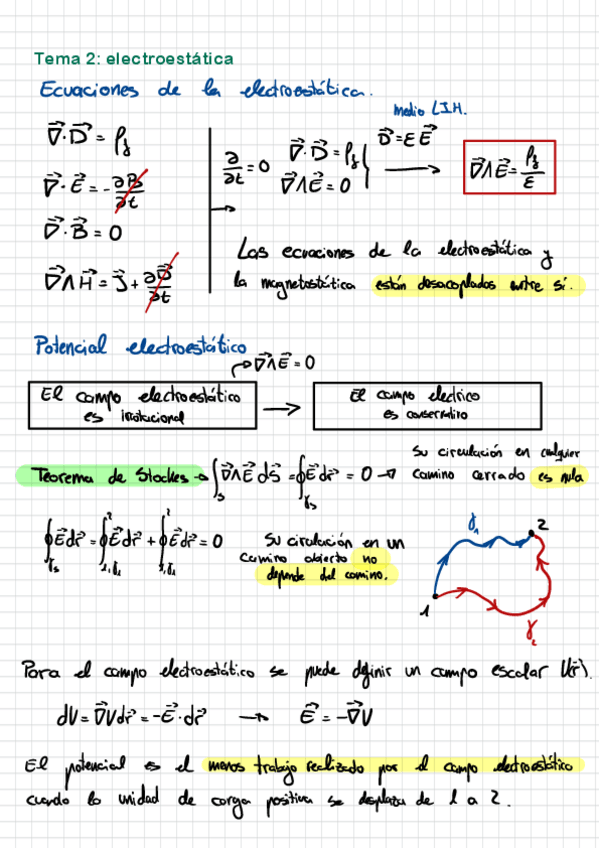 Tema 2: electroestática
Ecuaciones de la electroestática.
medio L.I.H.
∇⃗·D⃗ = ρf
∇⃗·E⃗ = -∂B⃗/∂t
∇⃗·B⃗ = 0
∇⃗∧H⃗ = J⃗ + ∂D⃗/∂t
∂/∂t = 0
∇⃗·D⃗ = ρf
∇⃗∧E⃗ = 0
D⃗ = εE⃗
∇⃗∧E⃗ = ρf/ε
Las ecuaciones de la electroestática y
la magnetostática están desacoplados entre sí.
Potencial electroestático
∇⃗∧E⃗ = 0
El campo electroestático
es irrotacional
El campo electrico
es conservativo
Teorema de Stockes → ∫s ∇⃗∧E⃗ dS⃗ = ∮γs E⃗dr⃗ = 0 →
Su circulación en cualquier
camino cerrado es nula
∮γs E⃗dr⃗ = ∮1,γ1² E⃗dr⃗ + ∮1,γ2² E⃗dr⃗ = 0
Su circulación en un
camino abierto no
depende del camino.
γ1
2
1
γ2
Para el campo electroestático se puede definir un campo escalar V(r⃗).
dV = ∇⃗V dr⃗ = -E⃗·dr⃗ → E⃗ = -∇⃗V
El potencial es el menos trabajo realizado por el campo electroestático
cuando la unidad de carga positiva se desplaza de 1 a 2.